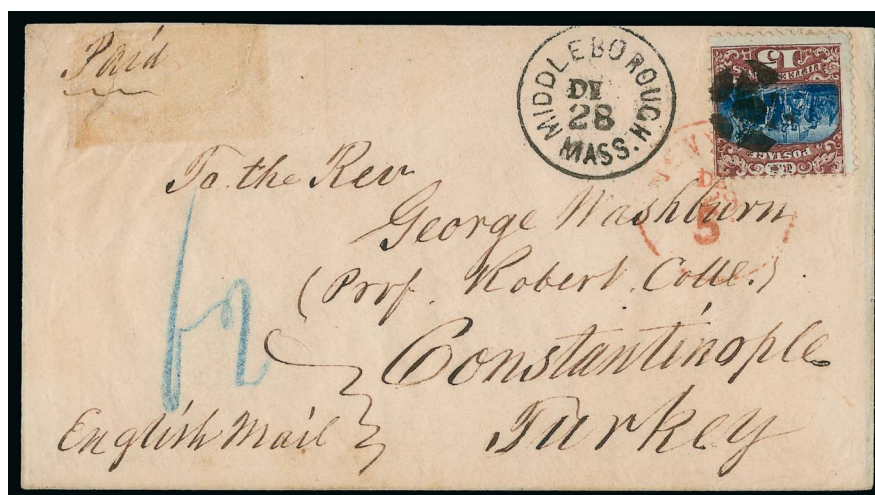 Paid
MIDDLEBOROUGH. MASS.
DE
28
15
U.S. POSTAGE
NEW
5
To the Rev
George Washburn
(Prof. Robert Colle.)
Constantinople
Turkey
English Mail